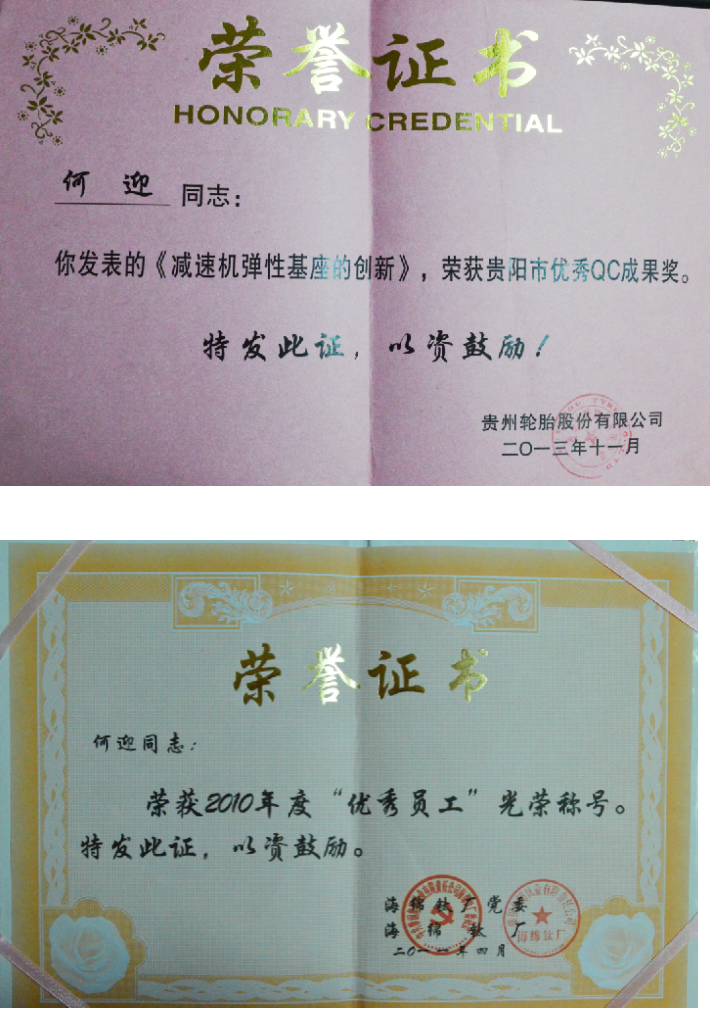 荣誉证书
HONORARY CREDENTIAL
何 迎 同志：
你发表的《减速机弹性基座的创新》，荣获贵阳市优秀QC成果奖。
特发此证，以资鼓励！
贵州轮胎股份有限公司
二〇一三年十一月
荣誉证书
何迎同志：
荣获2010年度“优秀员工”光荣称号。
特发此证，以资鼓励。
海绵钛厂党委
海绵钛厂
二〇一一年四月
海绵钛厂